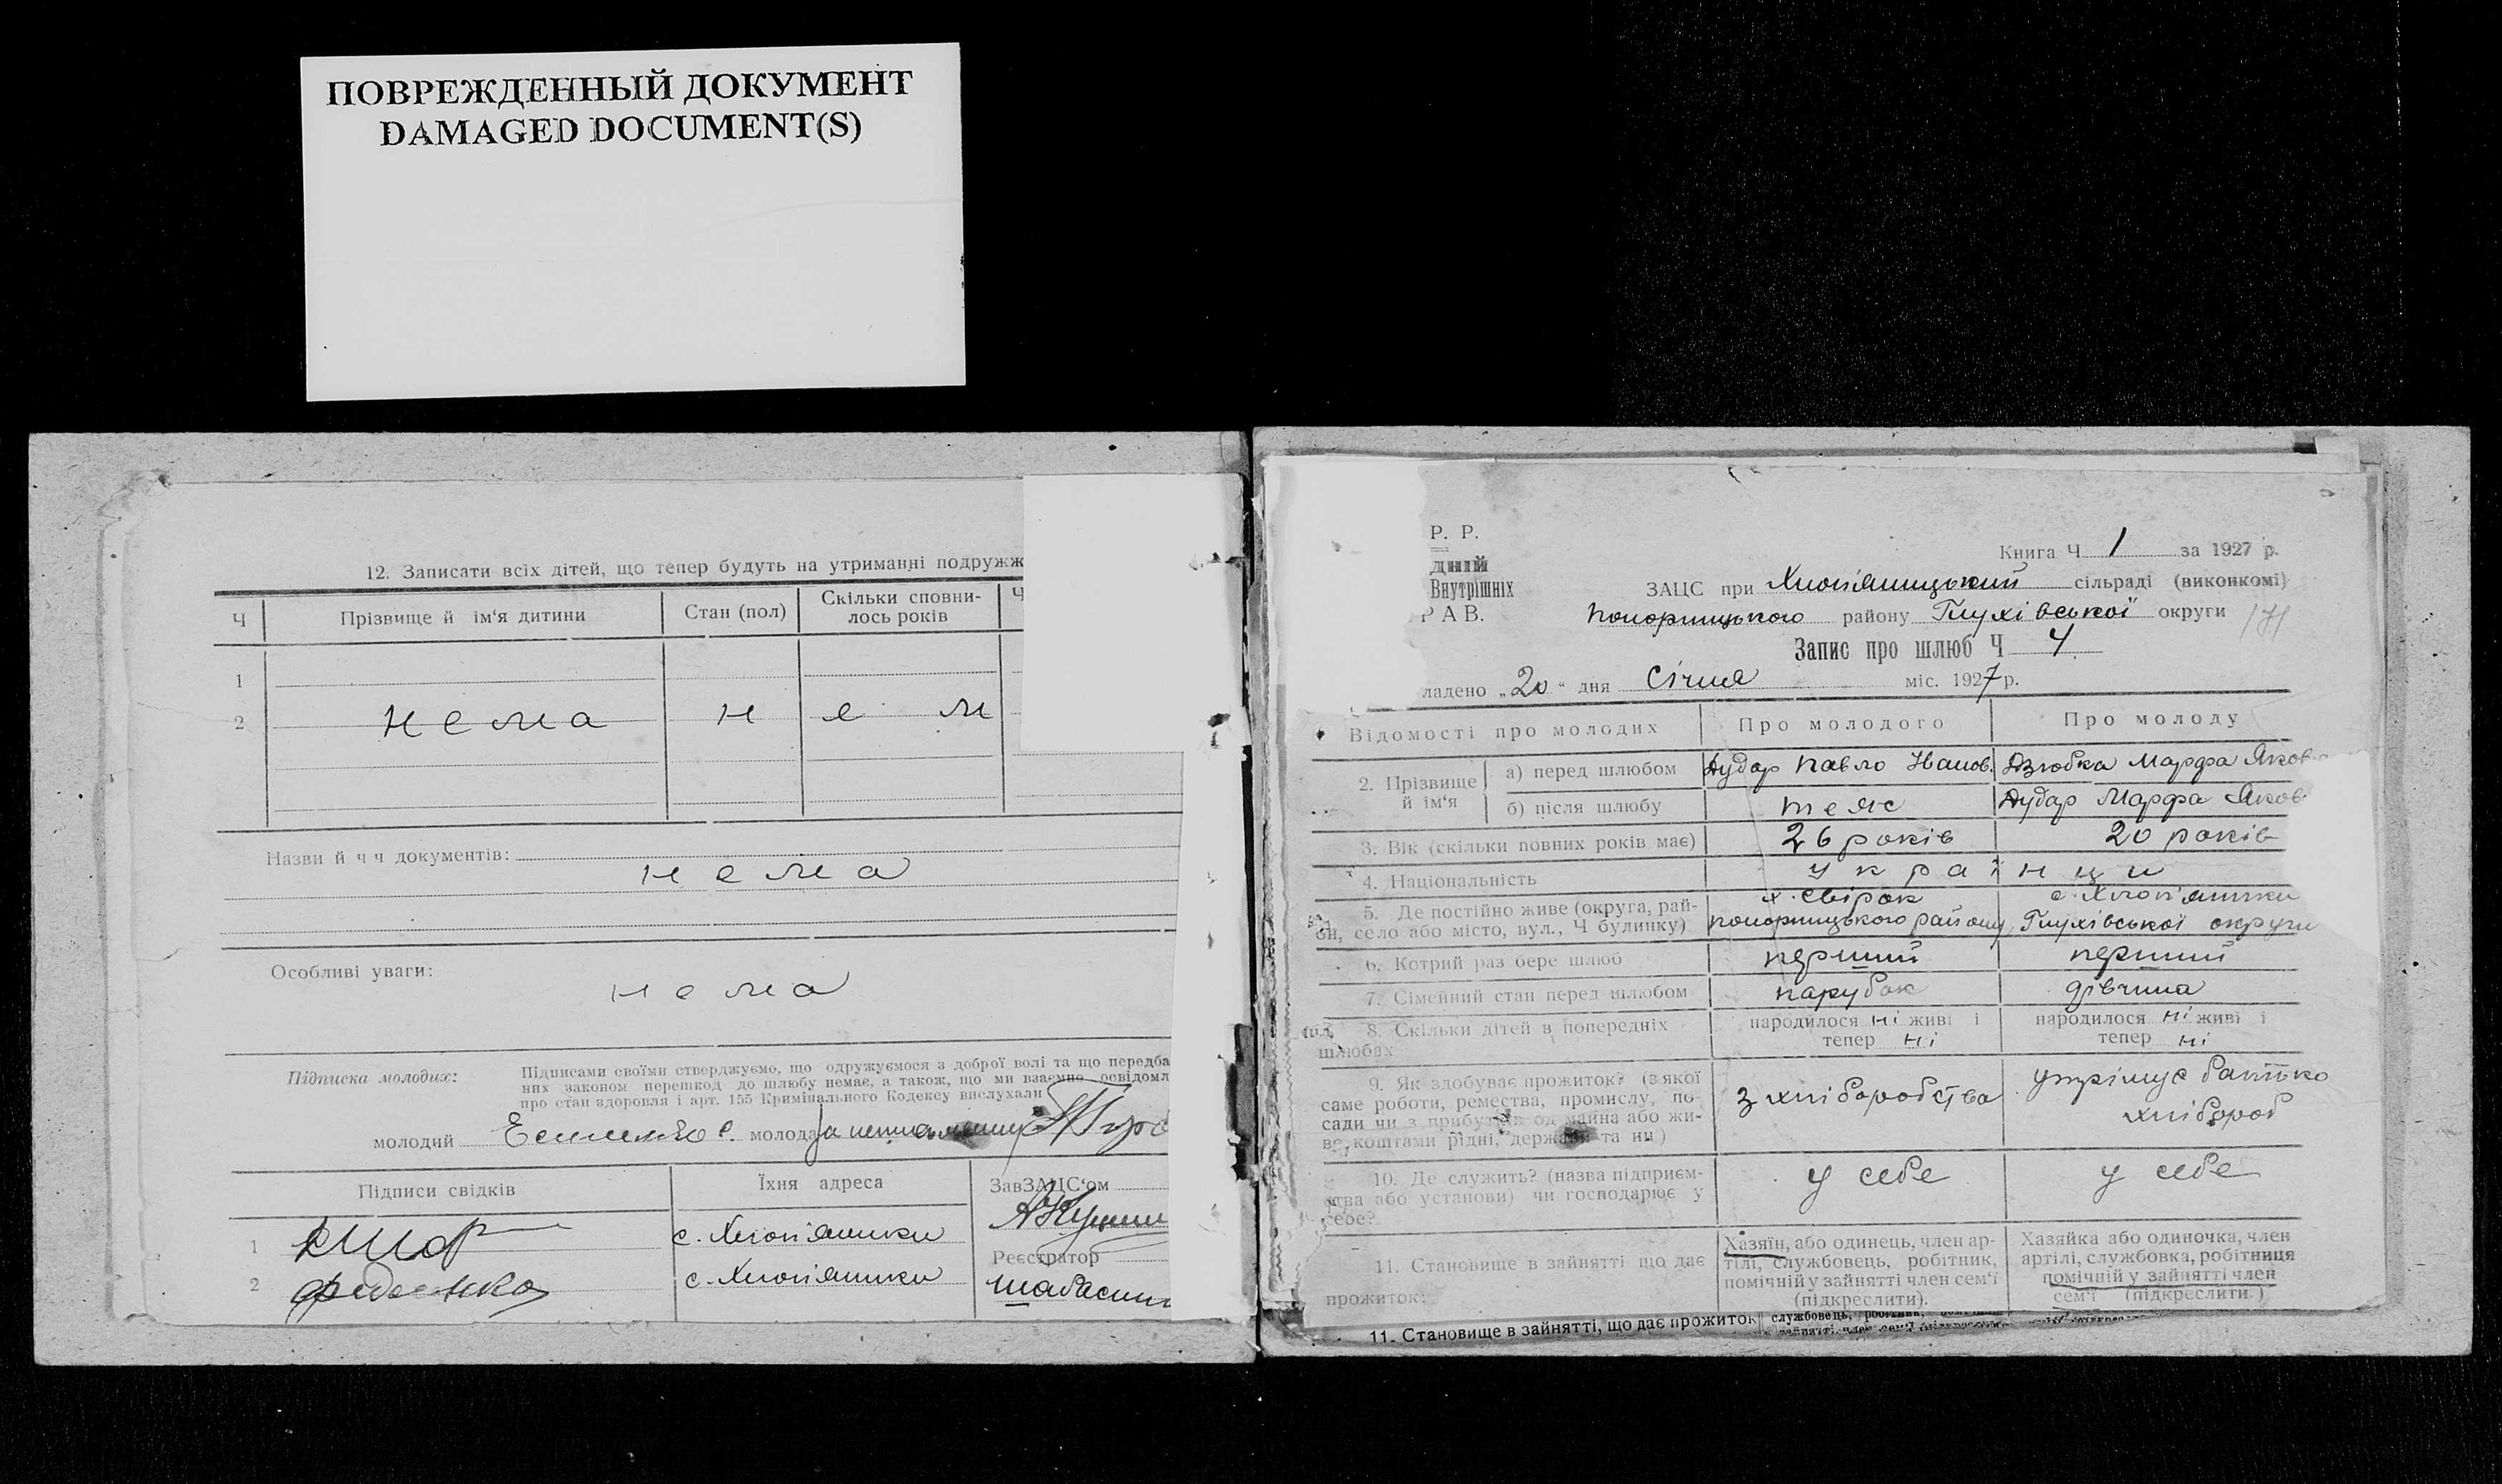 ПОВРЕЖДЕННЫЙ ДОКУМЕНТ
DAMAGED DOCUMENT(S)
12. Записати всіх дітей, що тепер будуть на утриманні подружж
Ч
Прізвище й ім'я дитини
Стан (пол)
Скільки сповни-
лось років
Ч
1
2 нема н е м
Назви й ч ч документів:
нема
Особливі уваги:
нема
Підписка молодих:
Підписами своїми стверджуємо, що одружуємося з доброї волі та що передба
них законом перешкод до шлюбу немає, а також, що ми взаємно освідомл
про стан здоровля і арт. 155 Кримінального Кодексу вислухали
молодий молода
Підписи свідків
Їхня адреса
ЗавЗАЦС'ом
1 с. Хлоп'яники
Реєстратор
2 Феденко с. Хлоп'яники
Р. Р.
дній
Внутрішніх
Р А В.
Книга Ч 1 за 1927 р.
ЗАЦС при Хлоп'яницький сільраді (виконкомі)
Понорницького району Глухівської округи
Запис про шлюб Ч 4
ладено „20" дня Січня міс. 1927 р.
Відомості про молодих
Про молодого
Про молоду
2. Прізвище
й ім'я
а) перед шлюбом
Дудар Павло Іванов.
Дзюбка Марфа Яков
б) після шлюбу
теж
Дудар Марфа Яков
3. Вік (скільки повних років має)
26 років
20 років
4. Національність
українци
5. Де постійно живе (округа, рай-
он, село або місто, вул., Ч будинку)
х. Свірок
с. Хлоп'яники
Понорницького району, Глухівської округи
6. Котрий раз бере шлюб
перший
перший
7. Сімейний стан перед шлюбом
парубок
дівчина
8. Скільки дітей в попередніх
шлюбах
народилося ні живі і
тепер ні
народилося ні живі і
тепер ні
9. Як здобуває прожиток? (з якої
саме роботи, ремества, промислу, по-
сади чи з прибутків од майна або жи-
ве коштами рідні, держави та ин)
з хліборобства
утрімує батько
хлібороб
10. Де служить? (назва підприєм-
ства або установи) чи господарює у
себе?
у себе
у себе
11. Становище в зайнятті що дає
прожиток:
Хазяїн, або одинець, член ар-
тілі, службовець, робітник,
помічній у зайнятті член сем'ї
(підкреслити).
Хазяйка або одиночка, член
артілі, службовка, робітниця
помічній у зайнятті член
сем'ї (підкреслити)
11. Становище в зайнятті, що дає прожиток
службовець,